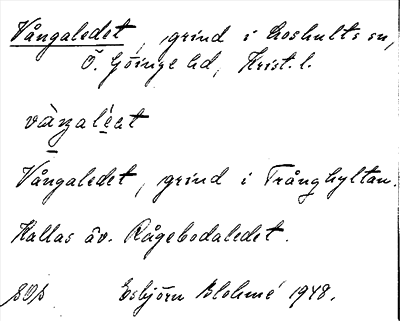 Vångaledet, grind i Loshults sn,
Ö. Göinge hd, Krist. l.
vàŋaléet
Vångaledet, grind i Trånghyltan.
Kallas äv. Rågebodaledet.
Esbjörn Blohmé 1948.